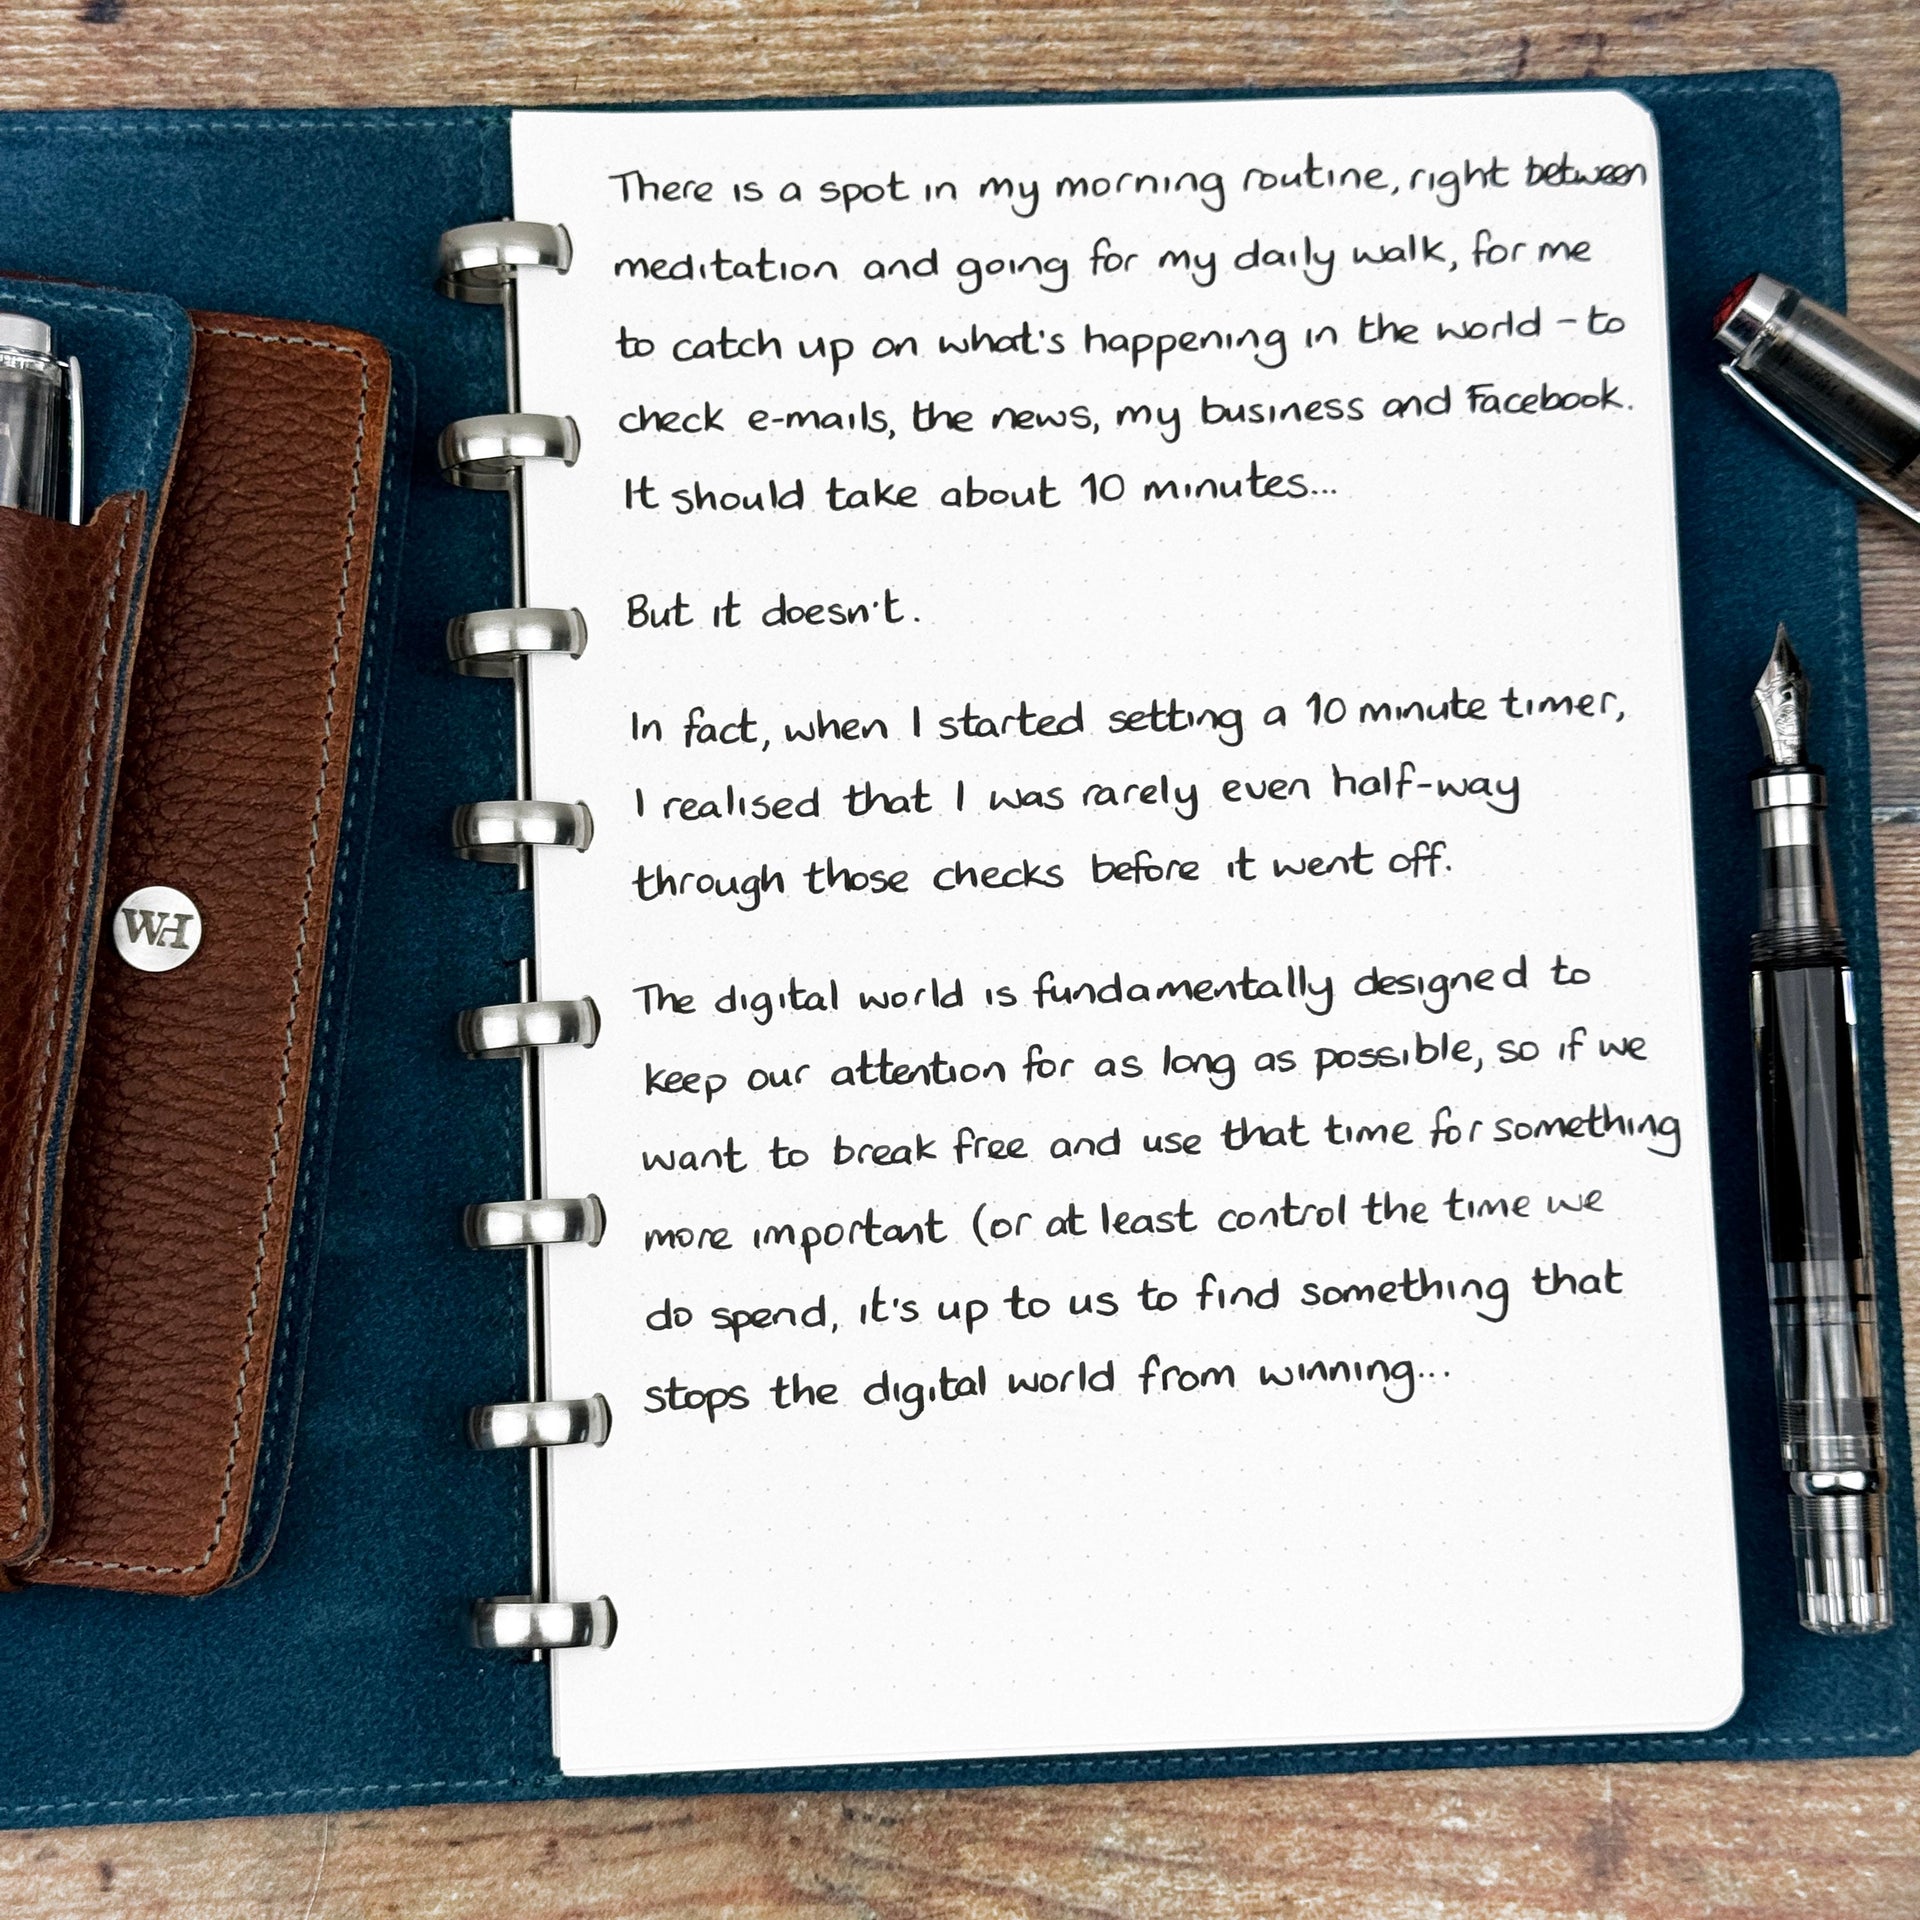 There is a spot in my morning routine, right between
meditation and going for my daily walk, for me
to catch up on what's happening in the world – to
check e-mails, the news, my business and Facebook.
It should take about 10 minutes...
But it doesn't.
In fact, when I started setting a 10 minute timer,
I realised that I was rarely even half-way
through those checks before it went off.
The digital world is fundamentally designed to
keep our attention for as long as possible, so if we
want to break free and use that time for something
more important (or at least control the time we
do spend, it's up to us to find something that
stops the digital world from winning...
WH